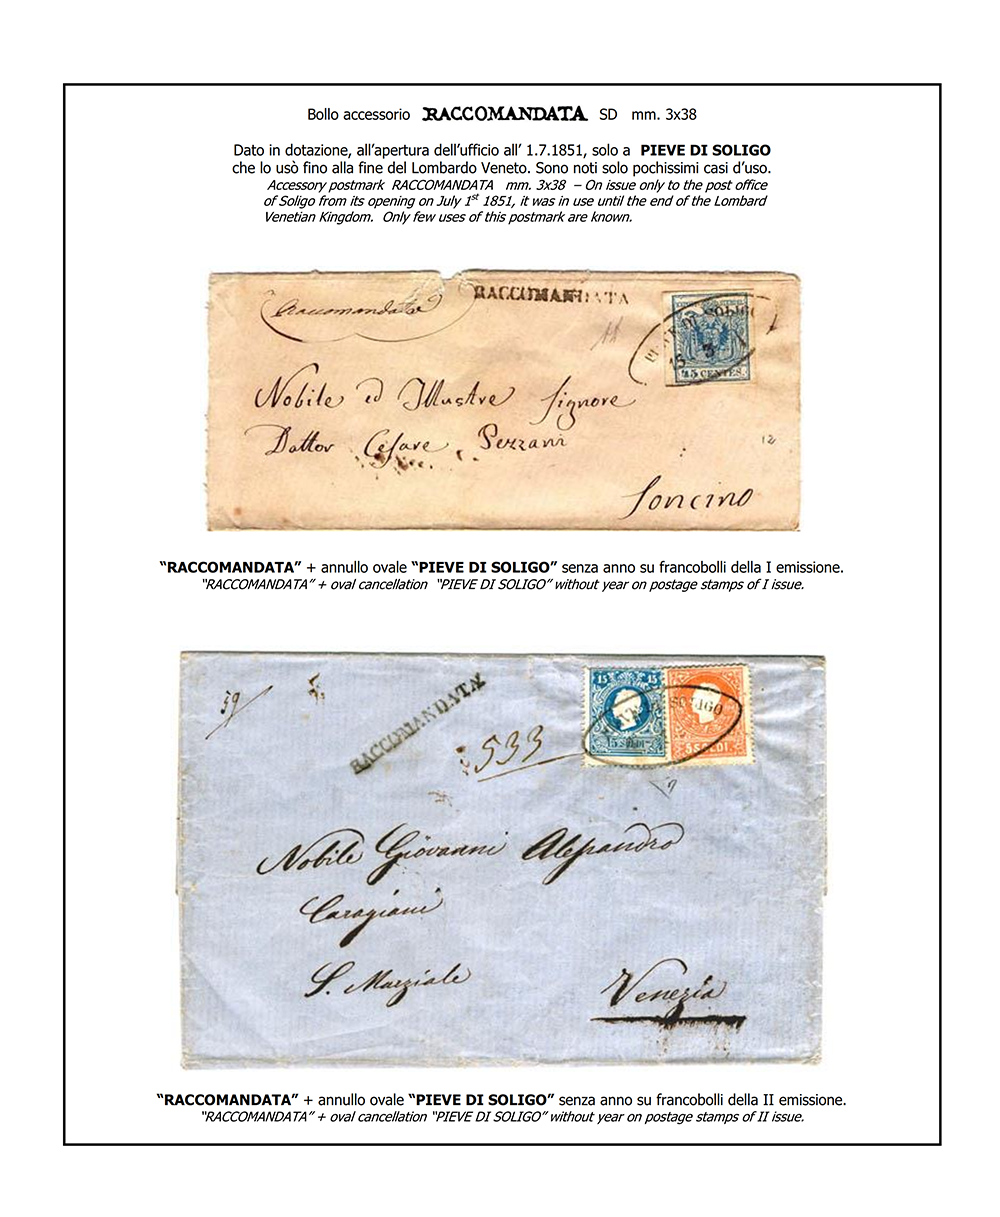 Bollo accessorio RACCOMANDATA SD mm. 3x38
Dato in dotazione, all’apertura dell’ufficio all’ 1.7.1851, solo a PIEVE DI SOLIGO
che lo usò fino alla fine del Lombardo Veneto. Sono noti solo pochissimi casi d’uso.
Accessory postmark RACCOMANDATA mm. 3x38 – On issue only to the post office
of Soligo from its opening on July 1st 1851, it was in use until the end of the Lombard
Venetian Kingdom. Only few uses of this postmark are known.
Raccomandata
RACCOMANDATA
PIEVE DI SOLIGO
15 3
45 CENTES.
Nobile ed Illustre Signore
Dottor Cesare Pezzani
12
Soncino
“RACCOMANDATA” + annullo ovale “PIEVE DI SOLIGO” senza anno su francobolli della I emissione.
“RACCOMANDATA” + oval cancellation “PIEVE DI SOLIGO” without year on postage stamps of I issue.
59
RACCOMANDATA
533
15 15
PIEVE DI SOLIGO
15 SOLDI
5 SOLDI
Nobile Giovanni Alessandro
Caragiani
S. Marziale
Venezia
“RACCOMANDATA” + annullo ovale “PIEVE DI SOLIGO” senza anno su francobolli della II emissione.
“RACCOMANDATA” + oval cancellation “PIEVE DI SOLIGO” without year on postage stamps of II issue.